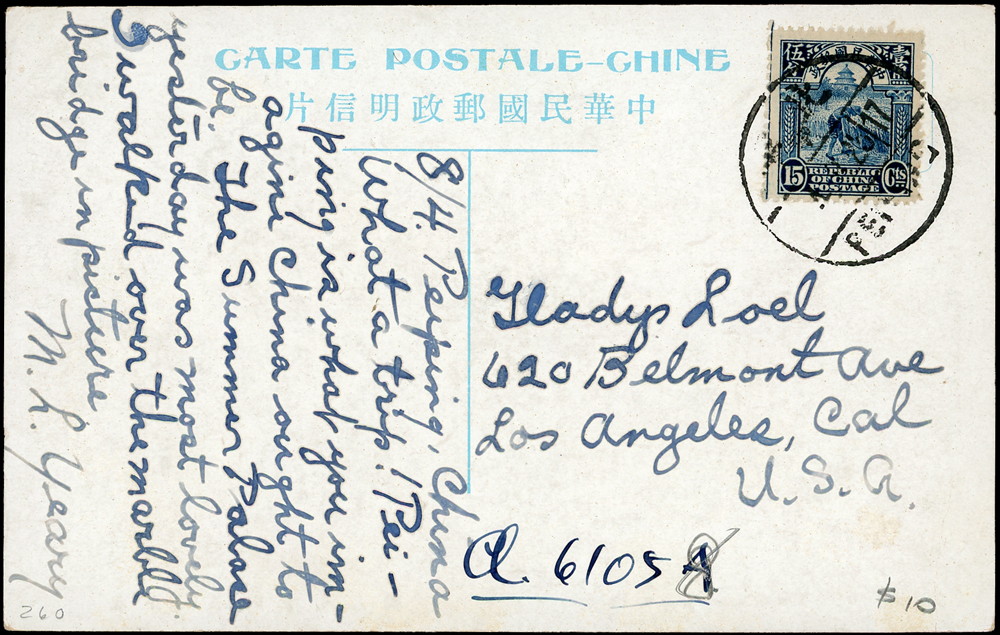 CARTE POSTALE-CHINE
中華民國郵政明信片
壹
伍
15 REPUBLIC Cts
OF CHINA
POSTAGE
8/4. Peiping, China
What a trip! Pei-
ping is what you im-
agine China ought to
be. The Summer Palase
yesterday was most lovely.
I walked over the marble
bridge in picture
M. L. Yeary
Gladys Loel
620 Belmont Ave
Los Angeles, Cal
U.S.A.
a. 6105
260
$10